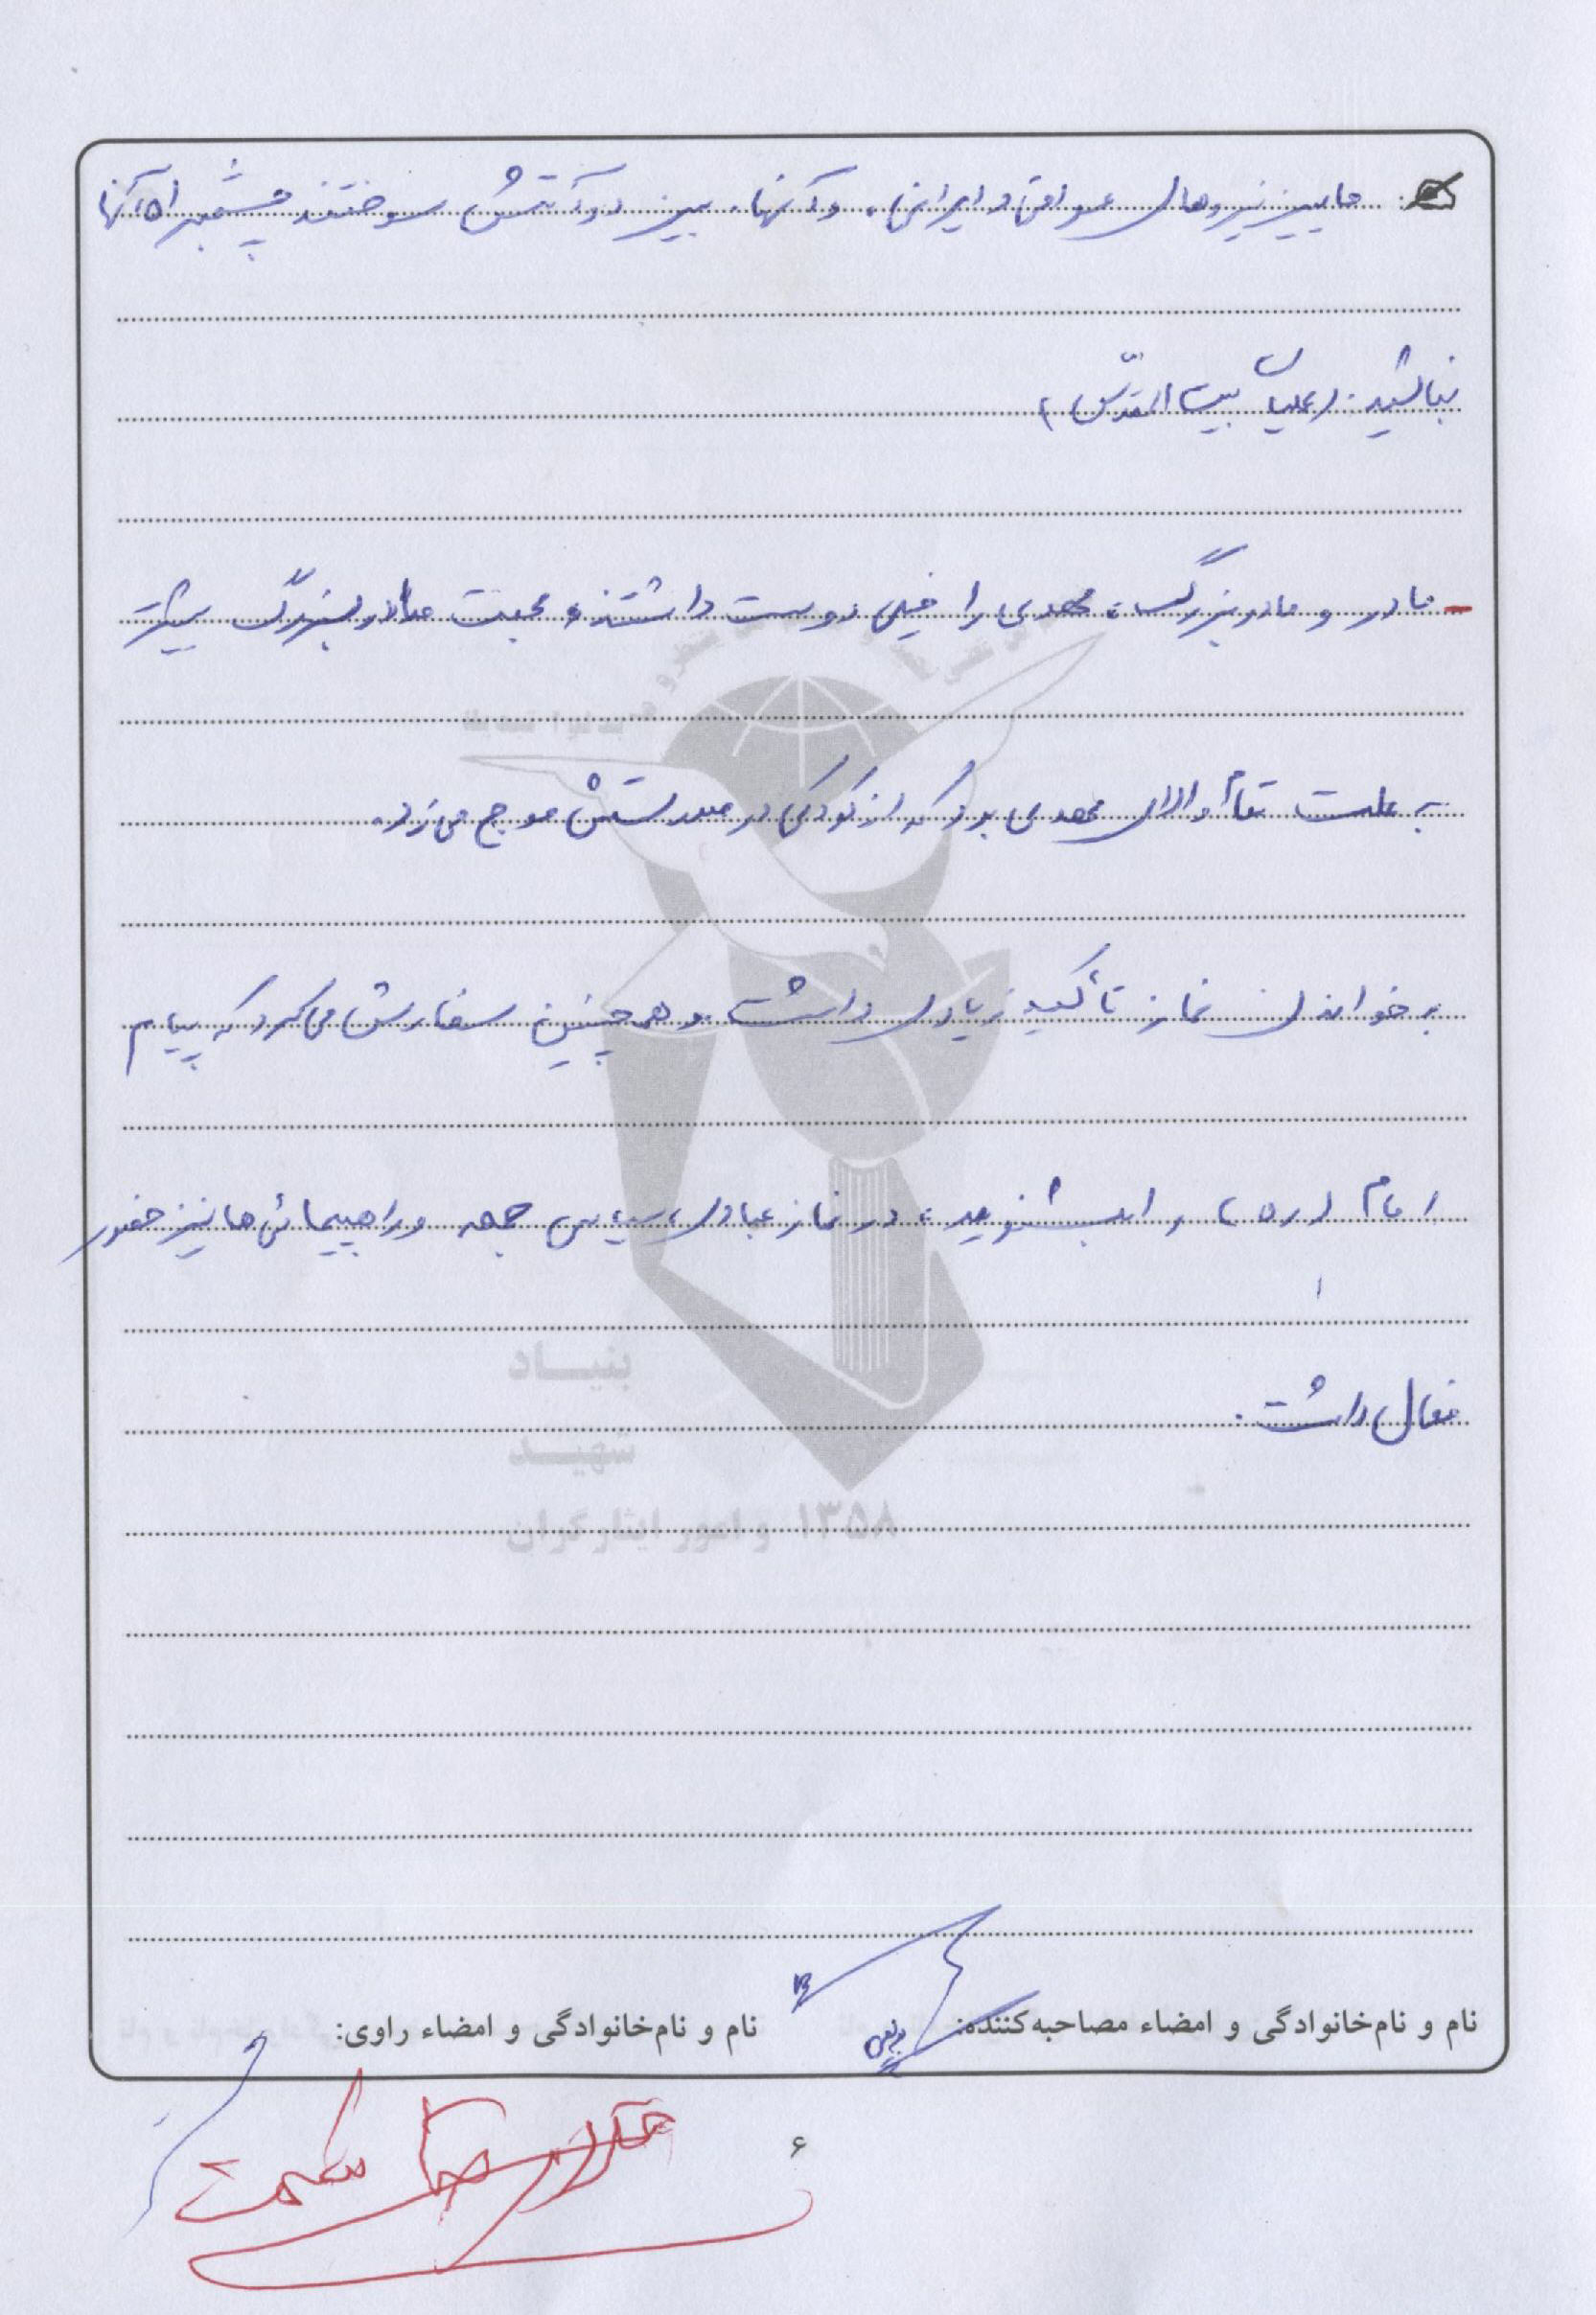 ما بین نیروهای عراقی و ایرانی، و آنها بین دو آتش سوختند چشم براه آنها
نباشید. (عملیات بیت المقدّس)
- مادر و مادربزرگ، مهدی را خیلی دوست داشتند، محبت مادربزرگ بیشتر
به علت تقأ والای مهدی بود که از کودکی در سرشتش موج می زد.
بر خواندن نماز تأکید زیادی داشت و همچنین سفارش می کرد که پیام
امام (ره) را بشنوید، در نماز عبادی سیاسی جمعه و راهپیمائی ها نیز حضور
فعال داشت.
بنیاد
شهید
و امور ایثارگران ۱۳۵۸
نام و نام‌خانوادگی و امضاء مصاحبه‌کننده:
نام و نام‌خانوادگی و امضاء راوی:
۶